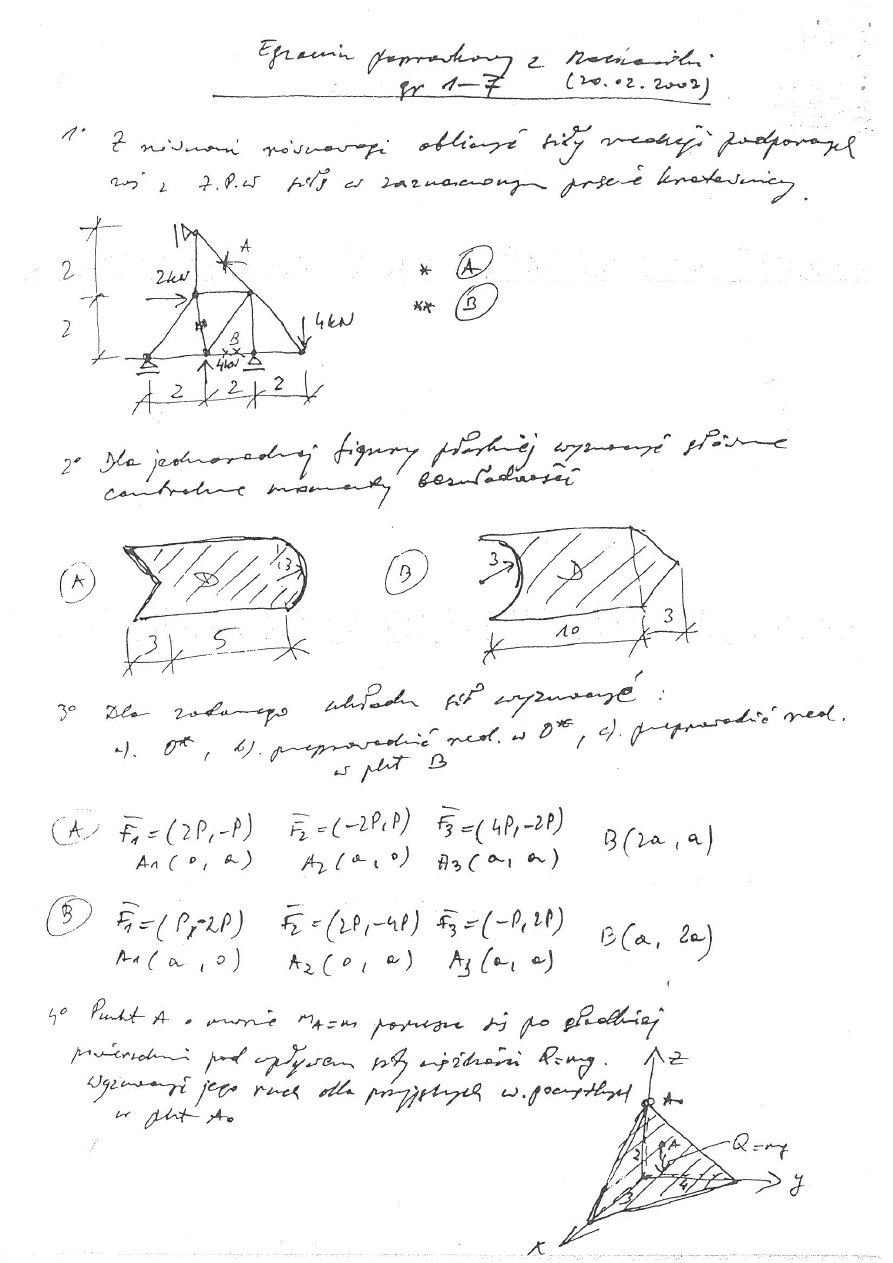 Egzamin poprawkowy z Mechaniki
gr 1–7 (20.02.2002)
1° Z równań równowagi obliczyć siły reakcji podporowych
zaś z Z.P.W siłę w zaznaczonym pręcie kratownicy.
A
2
2kN
* A
** B
2
4kN
B
4kN
2 2 2
2° Dla jednorodnej figury płaskiej wyznaczyć główne
centralne momenty bezwładności
A
3
B
3
3 5
10 3
3° Dla zadanego układu sił wyznaczyć:
a). O*, b). przeprowadzić red. w O*, c). przeprowadzić red.
w pkt B
A F̅1=(2P,-P) F̅2=(-2P,P) F̅3=(4P,-2P) B(2a,a)
A1(0,a) A2(a,0) A3(a,a)
B F̅1=(P,-2P) F̅2=(2P,-4P) F̅3=(-P,2P) B(a,2a)
A1(a,0) A2(0,a) A3(a,a)
4° Punkt A o masie mA=m porusza się po gładkiej
powierzchni pod wpływem siły ciężkości Q=mg.
Wyznaczyć jego ruch dla przyjętych w. początkowych
w pkt A0
z
A0
A
Q=mg
2
3
4
y
x